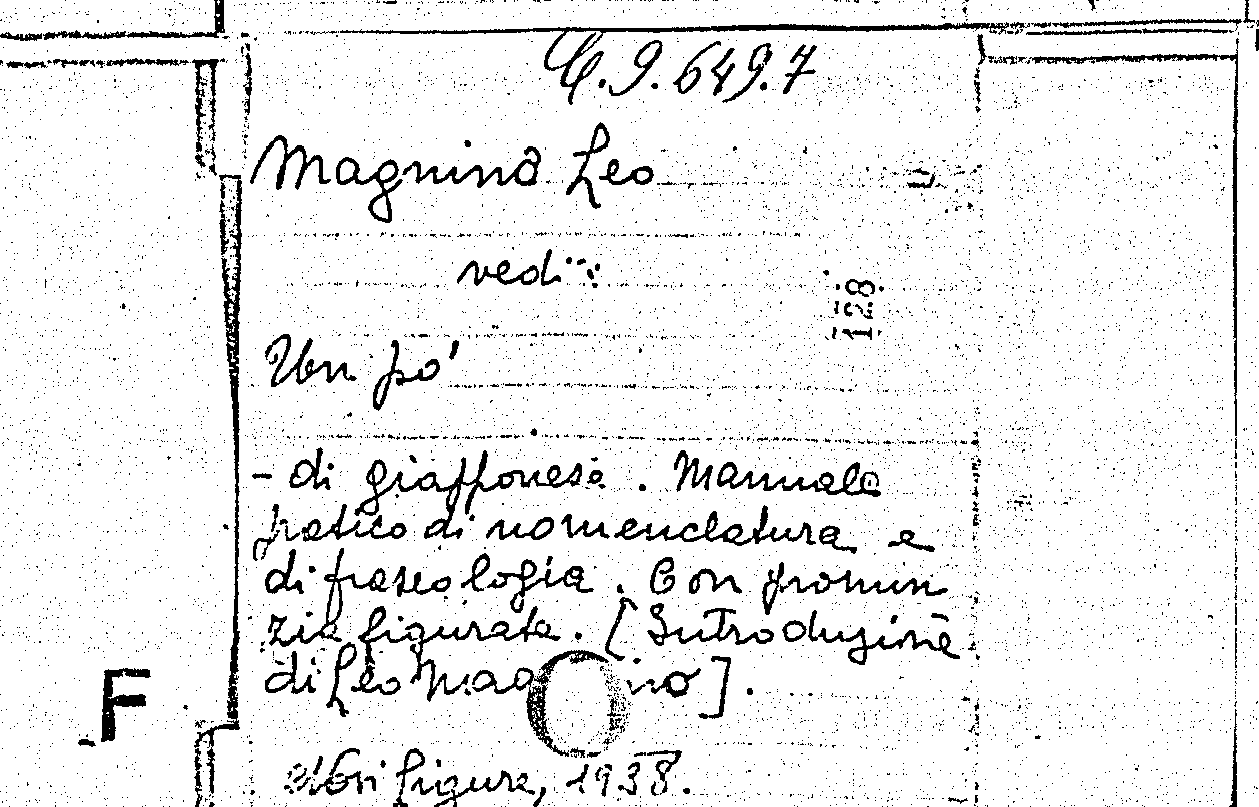 C.9.649.7
Magnino Leo
vedi:
128
Un po'
- di giapponese. Manuale
pratico di nomenclatura e
di fraseologia. Con pronun
zia figurata. [Introduzione
di Leo Mag ino].
F
figure, 1938.